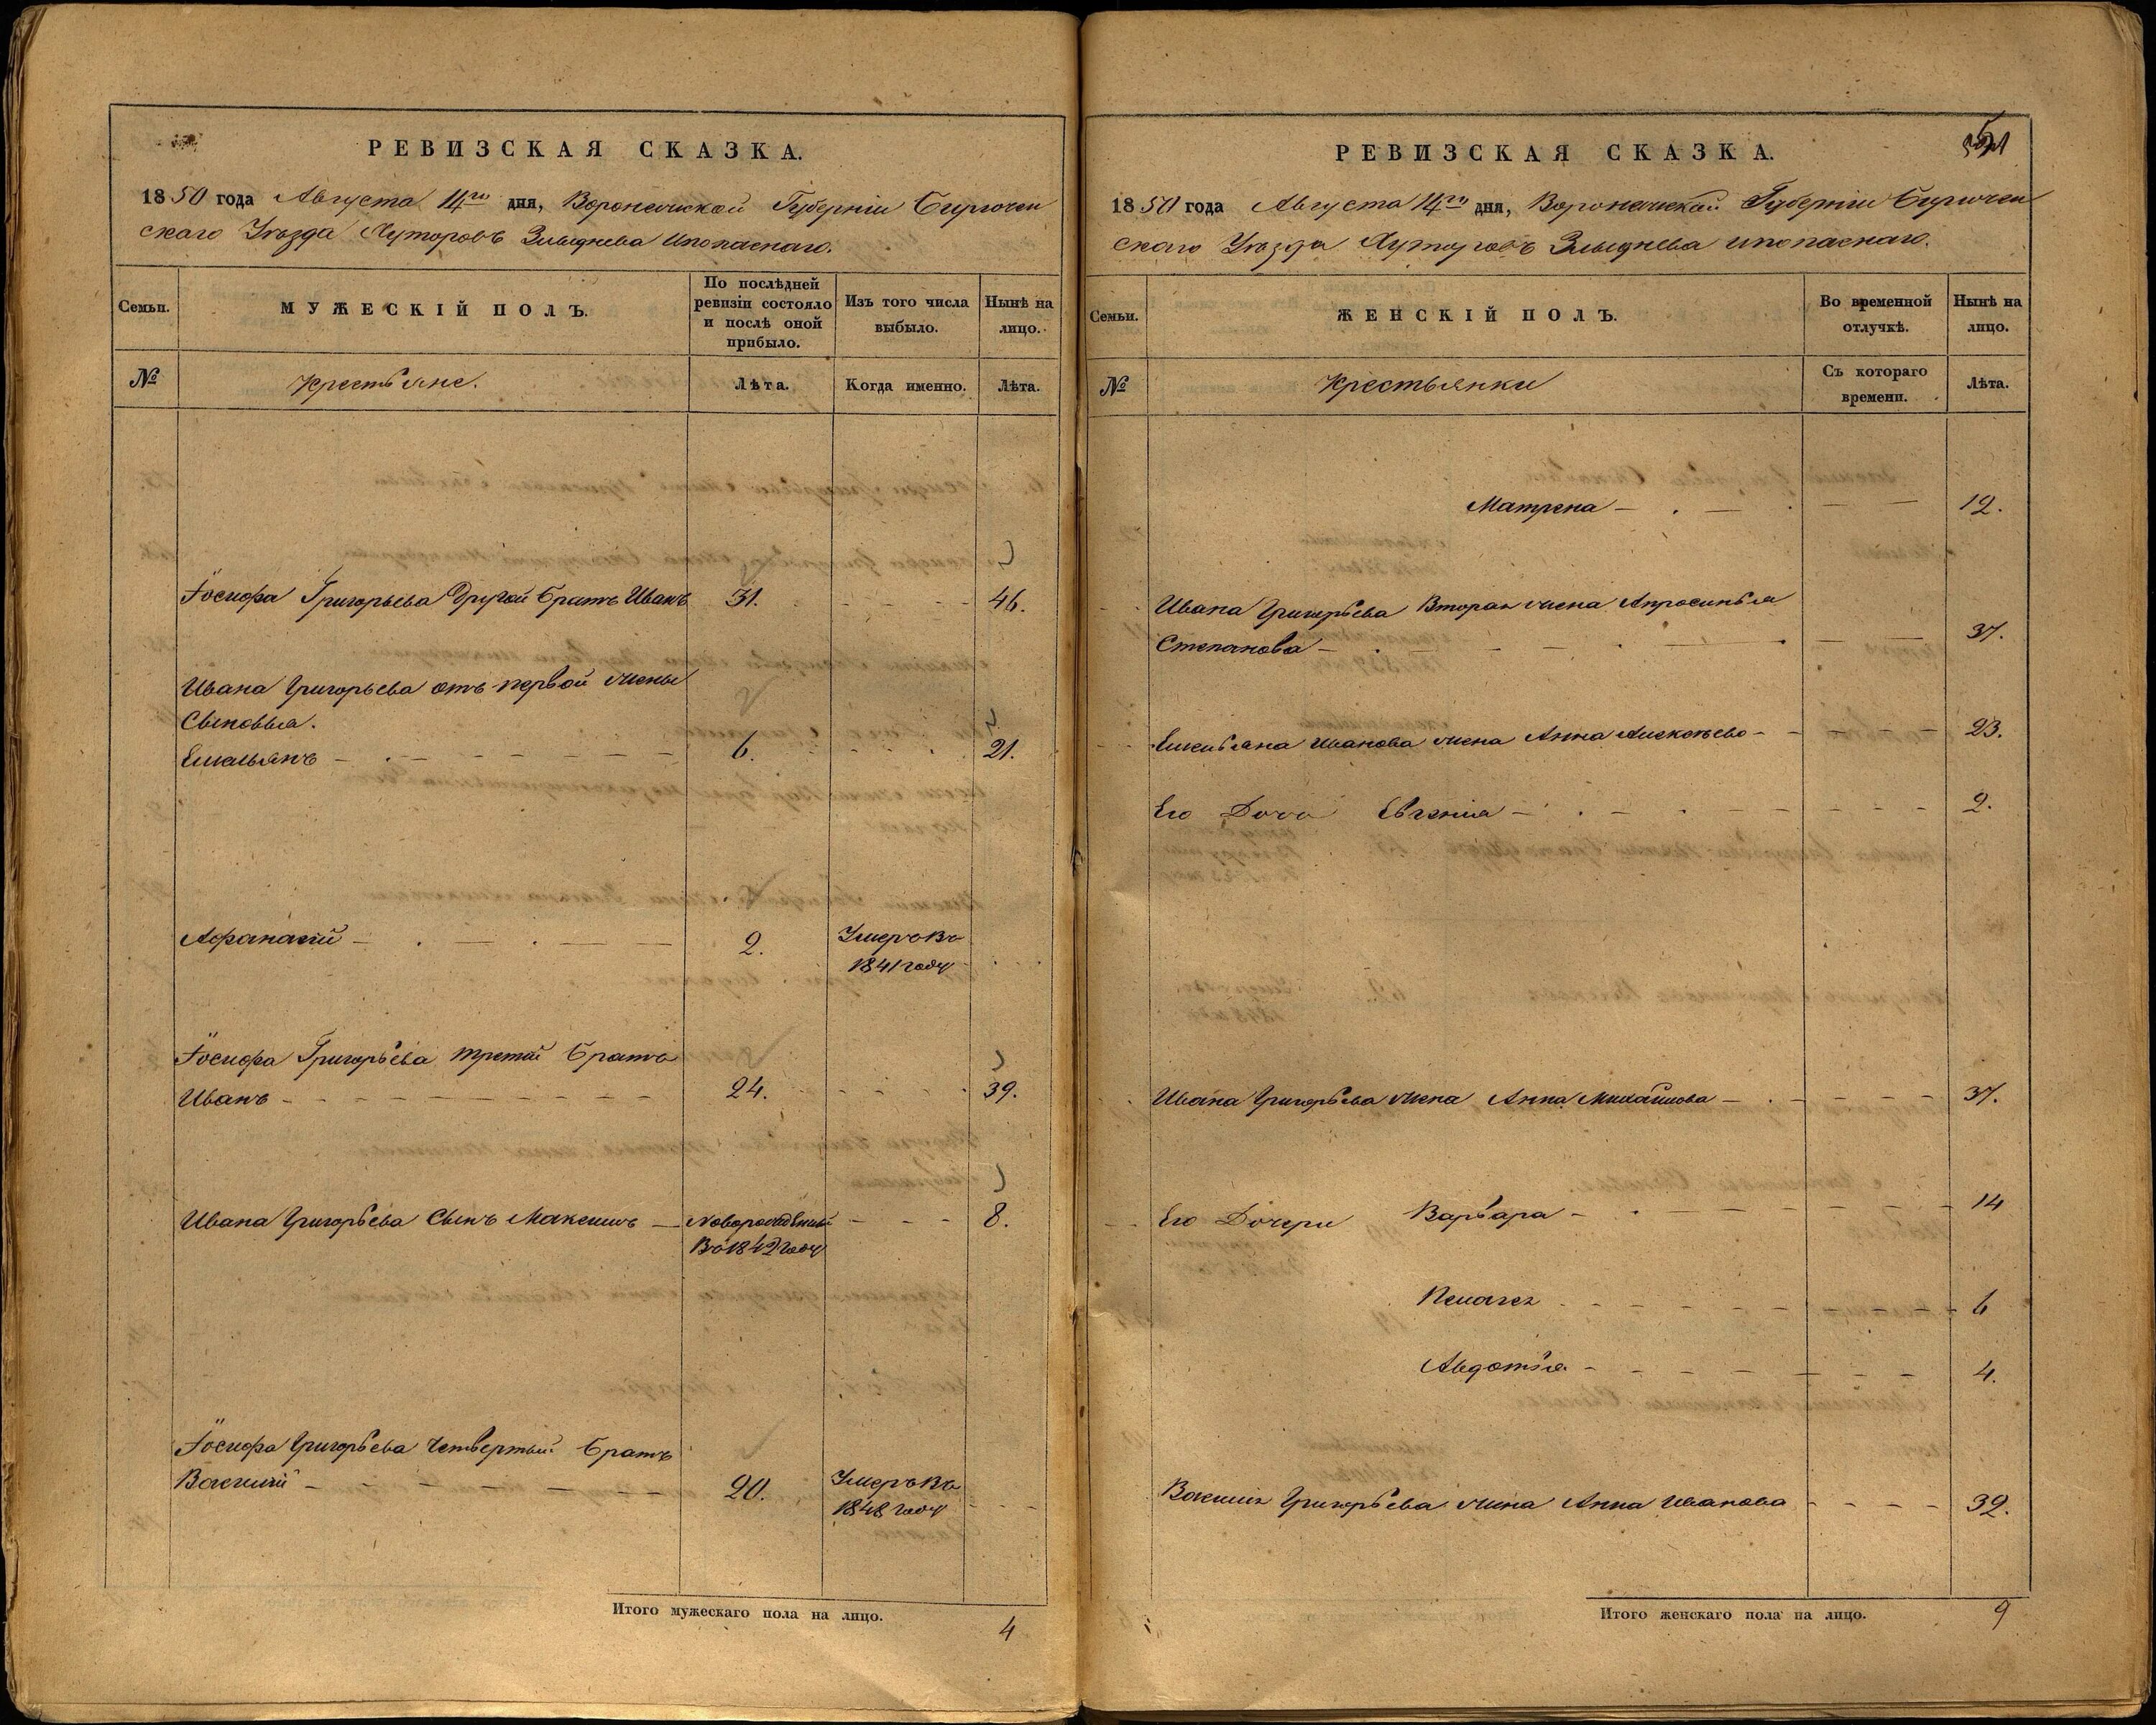 РЕВИЗСКАЯ СКАЗКА.
1850 года Августа 14го дня, Воронежской Губерніи Бирючен
скаго Уѣзда Хуторовъ Злыднева
Семьи.
МУЖЕСКІЙ ПОЛЪ.
По послѣдней ревизіи состояло и послѣ оной прибыло.
Изъ того числа выбыло.
Нынѣ на лицо.
№
Крестьяне.
Лѣта.
Когда именно.
Лѣта.
Іосифа Григорьева Другой Братъ Иванъ 31. 46.
Ивана Григорьева отъ первой жены
Сыновья.
Емельянъ 6. 21.
Афанасій 2. Умеръ въ
1841 году
Іосифа Григорьева третій Братъ
Иванъ 24. 39.
Ивана Григорьева Сынъ Максимъ Новорожденный 8.
Въ 1842 году
Іосифа Григорьева четвертый Братъ
Василій 20. Умеръ въ
1848 году
Итого мужескаго пола на лицо. 4
РЕВИЗСКАЯ СКАЗКА.
1850 года Августа 14го дня, Воронежской Губерніи Бирючен
скаго Уѣзда Хуторовъ Злыднева
Семьи.
ЖЕНСКІЙ ПОЛЪ.
Во временной отлучкѣ.
Нынѣ на лицо.
№
Крестьянки
Съ котораго времени.
Лѣта.
Матрена 12.
Ивана Григорьева Вторая жена Апросинья
Степанова 37.
Емельяна Иванова жена Анна 23.
Его Дочь Евгенія 2.
Ивана Григорьева жена Анна Михайлова 37.
Его Дочери Варвара 14
Пелагея 6
Авдотья 4.
Василія Григорьева жена Анна Иванова 32.
Итого женскаго пола на лицо. 9